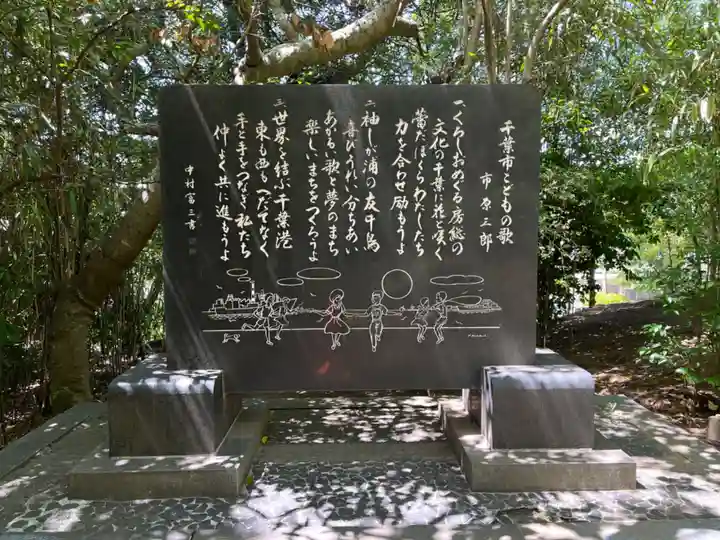 千葉市こどもの歌
市原三郎
一、くろしおめぐる房総の
文化の千葉に花と咲く
蕾だほくらわたしたち
力を合わせ励もうよ
二、袖しが浦の友千鳥
喜びうれい分ちあい
あかるい歌と夢のまち
楽しいまちをつくろうよ
三、世界を結ぶ千葉港
東も西もへだてなく
手と手をつなぎ私たち
仲よく共に進もうよ
中村富三書